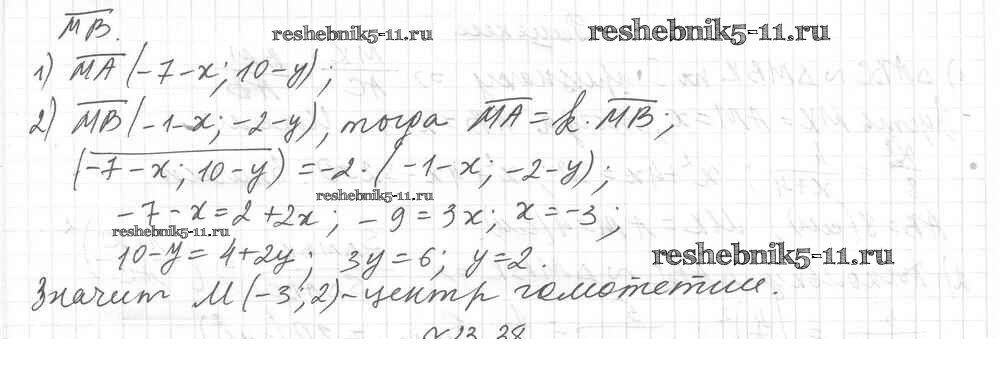 MB.
reshebnik5-11.ru
reshebnik5-11.ru
1) MA (-7-x; 10-y);
2) MB (-1-x; -2-y), тогда MA = k · MB;
(-7-x; 10-y) = -2 · (-1-x; -2-y);
reshebnik5-11.ru
-7-x = 2+2x; -9 = 3x; x = -3;
reshebnik5-11.ru
10-y = 4+2y; 3y = 6; y = 2.
reshebnik5-11.ru
Значит M (-3; 2) - центр гомотетии.